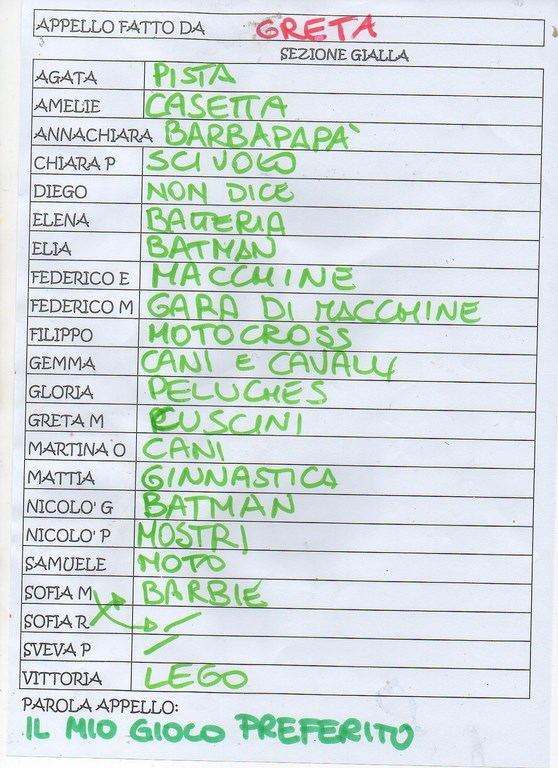 APPELLO FATTO DA GRETA
SEZIONE GIALLA
AGATA PISTA
AMELIE CASETTA
ANNACHIARA BARBAPAPA'
CHIARA P SCIVOLO
DIEGO NON DICE
ELENA BATTERIA
ELIA BATMAN
FEDERICO E MACCHINE
FEDERICO M GARA DI MACCHINE
FILIPPO MOTOCROSS
GEMMA CANI E CAVALLI
GLORIA PELUCHES
GRETA M CUSCINI
MARTINA O CANI
MATTIA GINNASTICA
NICOLO' G BATMAN
NICOLO' P MOSTRI
SAMUELE MOTO
SOFIA M BARBIE
SOFIA R
SVEVA P
VITTORIA LEGO
PAROLA APPELLO:
IL MIO GIOCO PREFERITO